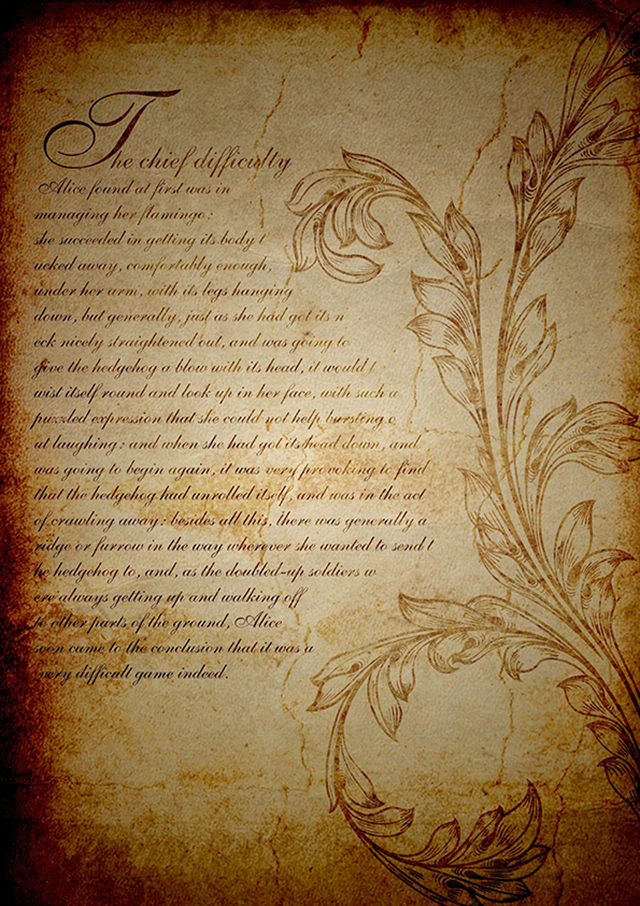 The chief difficulty
Alice found at first was in
managing her flamingo:
she succeeded in getting its body t
ucked away, comfortably enough,
under her arm, with its legs hanging
down, but generally, just as she had got its n
eck nicely straightened out, and was going to
give the hedgehog a blow with its head, it would t
wist itself round and look up in her face, with such a
puzzled expression that she could not help bursting o
ut laughing: and when she had got its head down, and
was going to begin again, it was very provoking to find
that the hedgehog had unrolled itself, and was in the act
of crawling away: besides all this, there was generally a
ridge or furrow in the way wherever she wanted to send t
he hedgehog to, and, as the doubled-up soldiers w
ere always getting up and walking off
to other parts of the ground, Alice
soon came to the conclusion that it was a
very difficult game indeed.